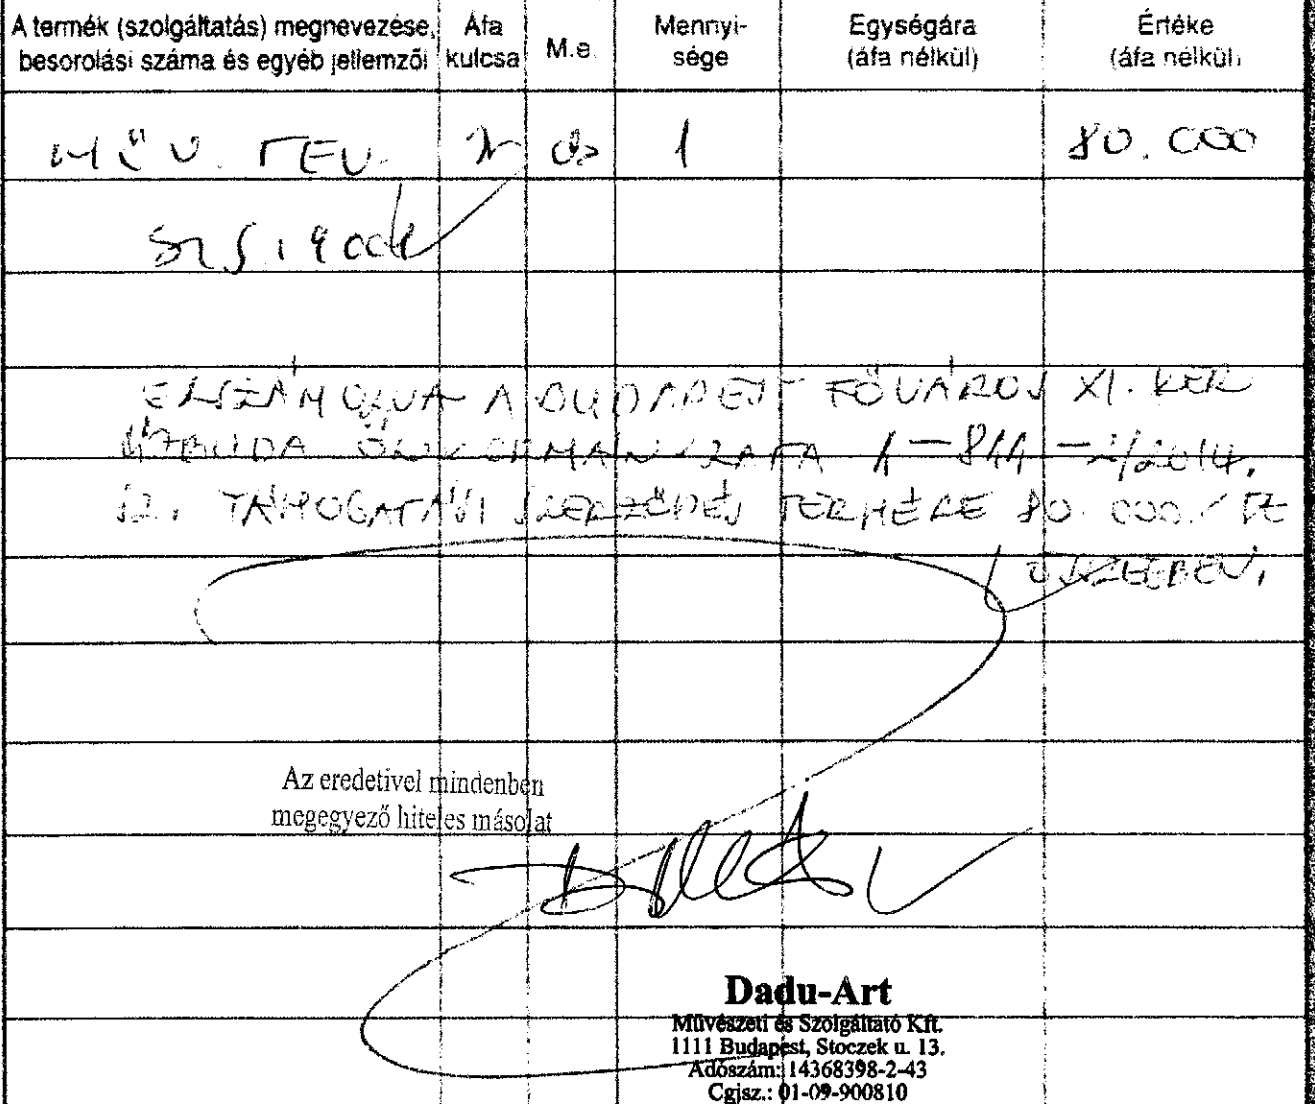 A termék (szolgáltatás) megnevezése, besorolási száma és egyéb jellemzői
Áfa kulcsa
M.e.
Mennyi-
sége
Egységára
(áfa nélkül)
Értéke
(áfa nélkül)
MŰV. TEV. 1 80.000
ELSZÁMOLVA A BUDAPEST FŐVÁROS XI. KER
ÚJBUDA ÖNKORMÁNYZATA 1-844-2/2014.
SZ. TÁMOGATÁSI SZERZŐDÉS TERHÉRE 80.000.- FT
ÖSSZEGBEN.
Az eredetivel mindenben
megegyező hiteles másolat
Dadu-Art
Művészeti és Szolgáltató Kft.
1111 Budapest, Stoczek u. 13.
Adószám: 14368398-2-43
Cgjsz.: 01-09-900810